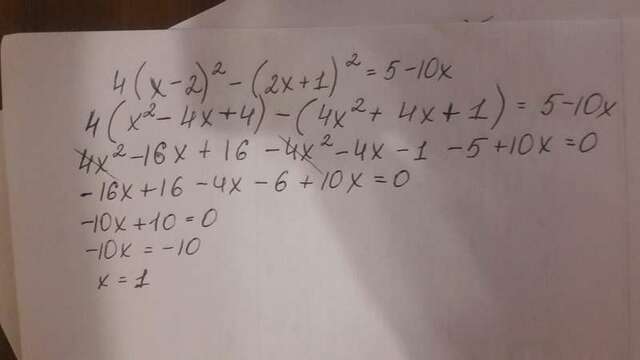 4(x-2)² - (2x+1)² = 5-10x
4(x²-4x+4) - (4x²+4x+1) = 5-10x
4x²-16x+16-4x²-4x-1-5+10x=0
-16x+16-4x-6+10x=0
-10x+10=0
-10x=-10
x=1